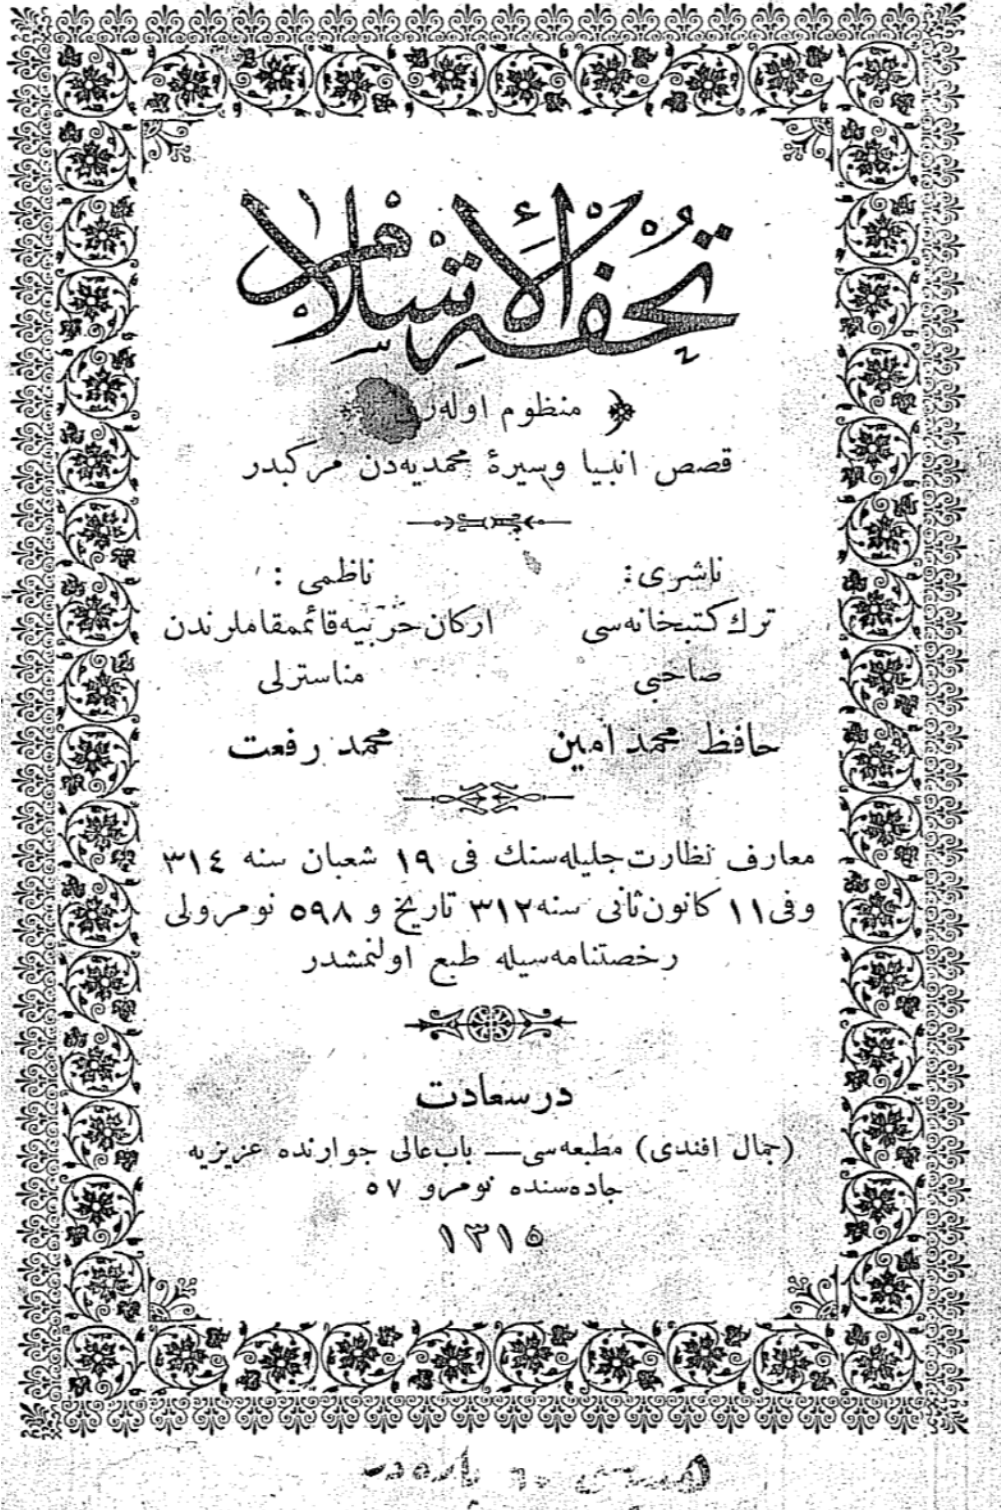 تحفة الاسلام
منظوم اوله‌رق
قصص انبیا و سیرهٔ محمدیه‌دن مركبدر
ناشری :
ترك كتبخانه‌سی
صاحبی
حافظ محمد امین
ناظمی :
اركان حربیه قائممقاملرندن
مناسترلی
محمد رفعت
معارف نظارت جلیله‌سنك فی ١٩ شعبان سنه ٣١٤
وفی ١١ كانون ثانی سنه ٣١٢ تاریخ و ٥٩٨ نومرولی
رخصتنامه‌سیله طبع اولنمشدر
درسعادت
(جمال افندی) مطبعه‌سی — باب عالی جوارنده عزیزیه
جاده‌سنده نومرو ٥٧
١٣١٥